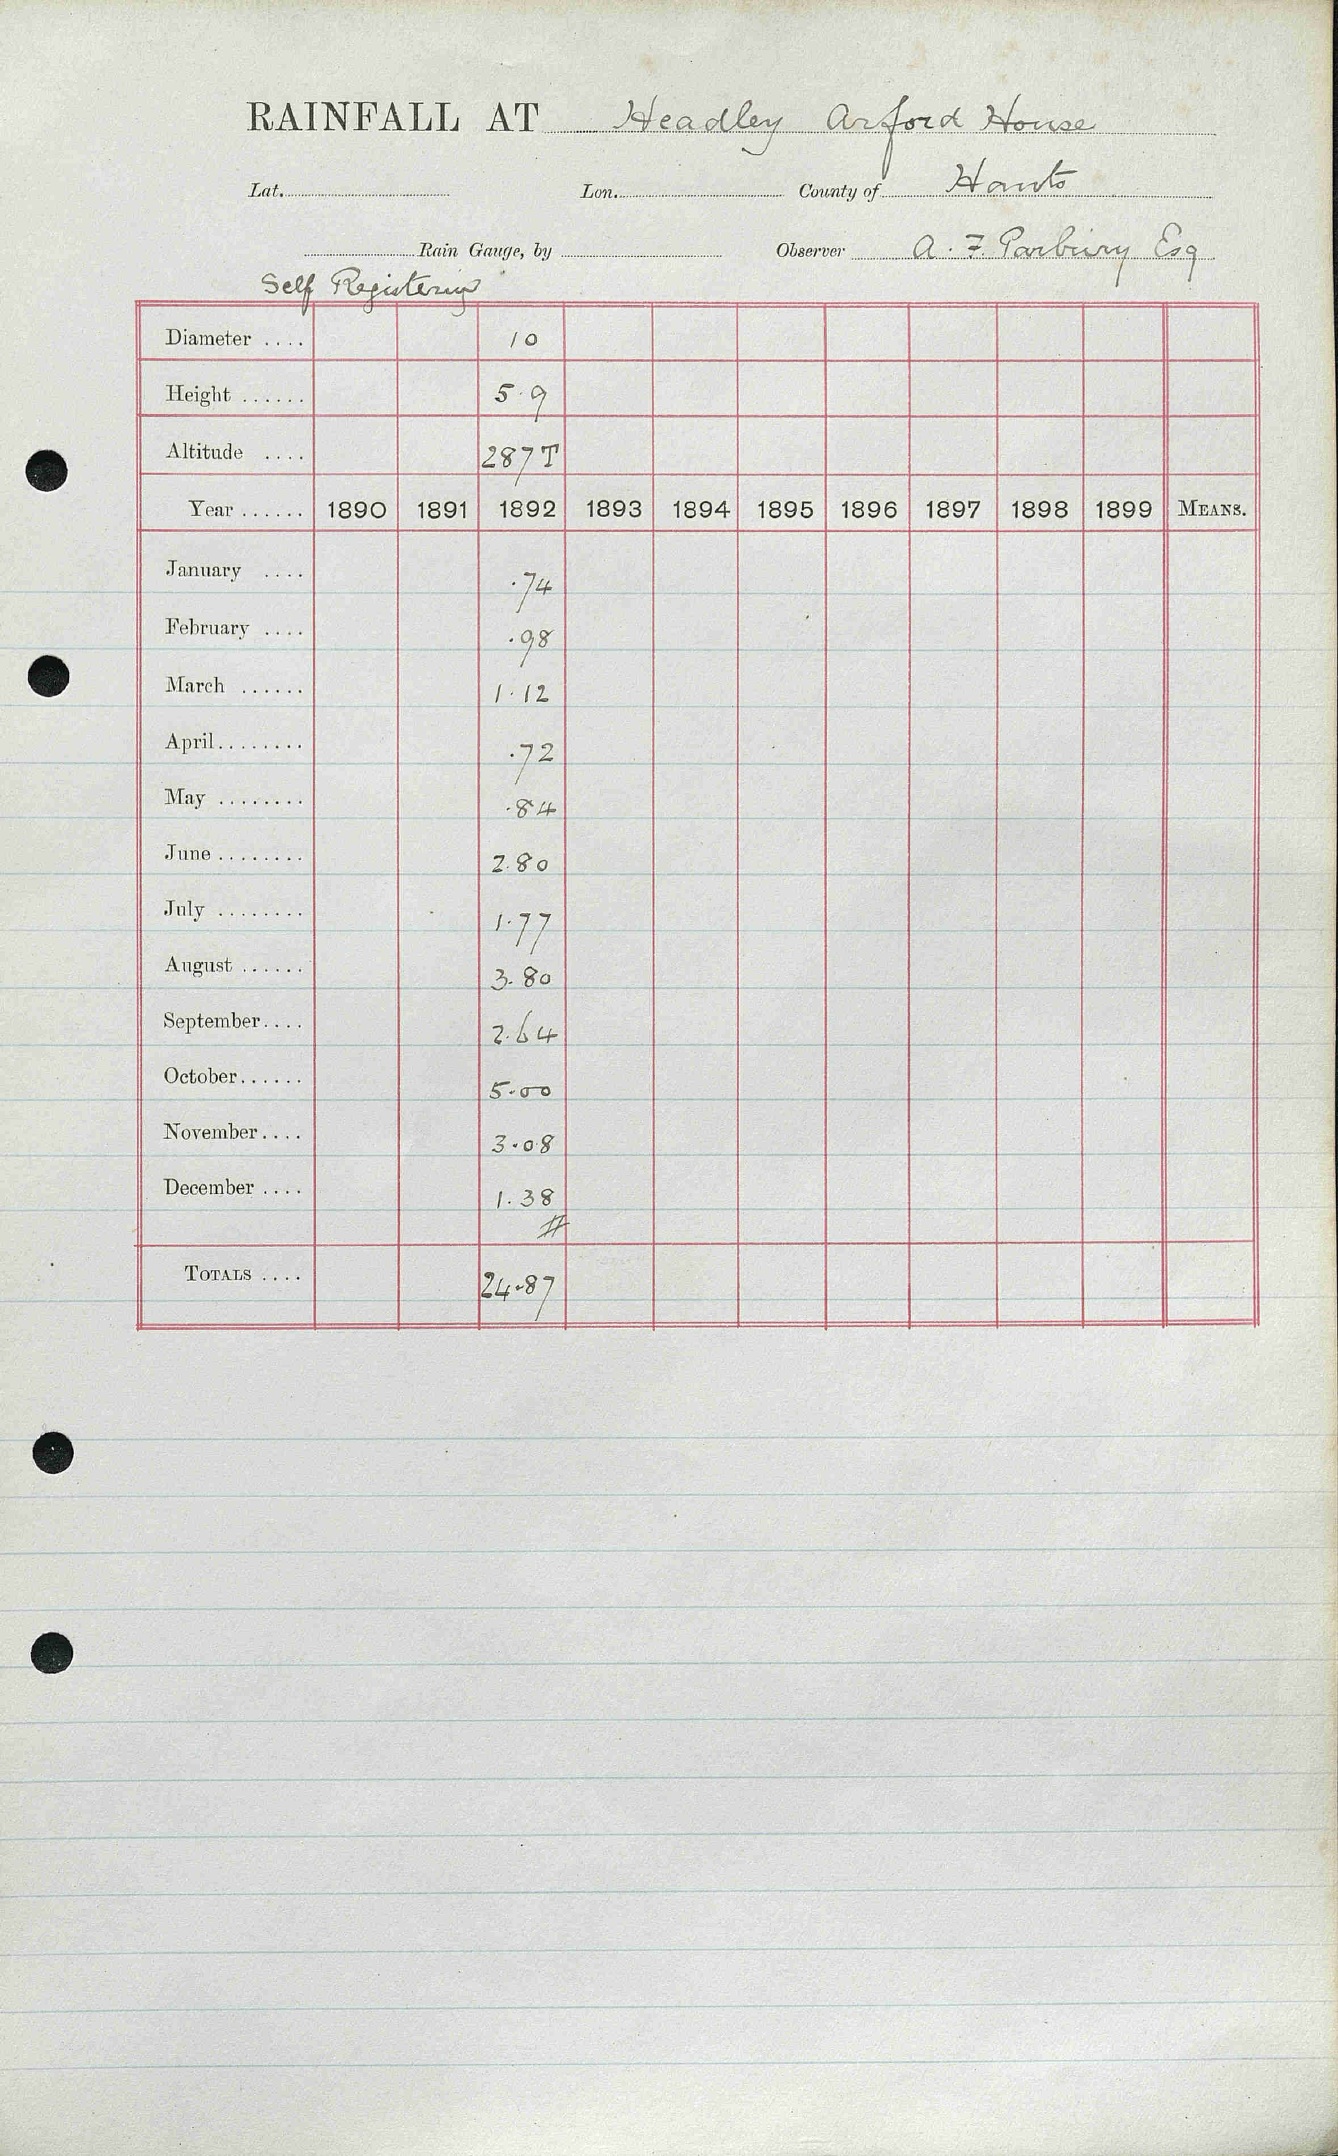 RAINFALL AT Headley Arford House
Lat. Lon. County of Hants
Rain Gauge, by Observer A. F. Parbury Esq
Self Registering
Diameter .... 10
Height ...... 5.9
Altitude .... 287 T
Year ...... 1890 1891 1892 1893 1894 1895 1896 1897 1898 1899 MEANS.
January .... .74
February .... .98
March ...... 1.12
April........ .72
May ........ .84
June ........ 2.80
July ........ 1.77
August ...... 3.80
September.... 2.64
October...... 5.00
November.... 3.08
December .... 1.38
#
TOTALS .... 24.87